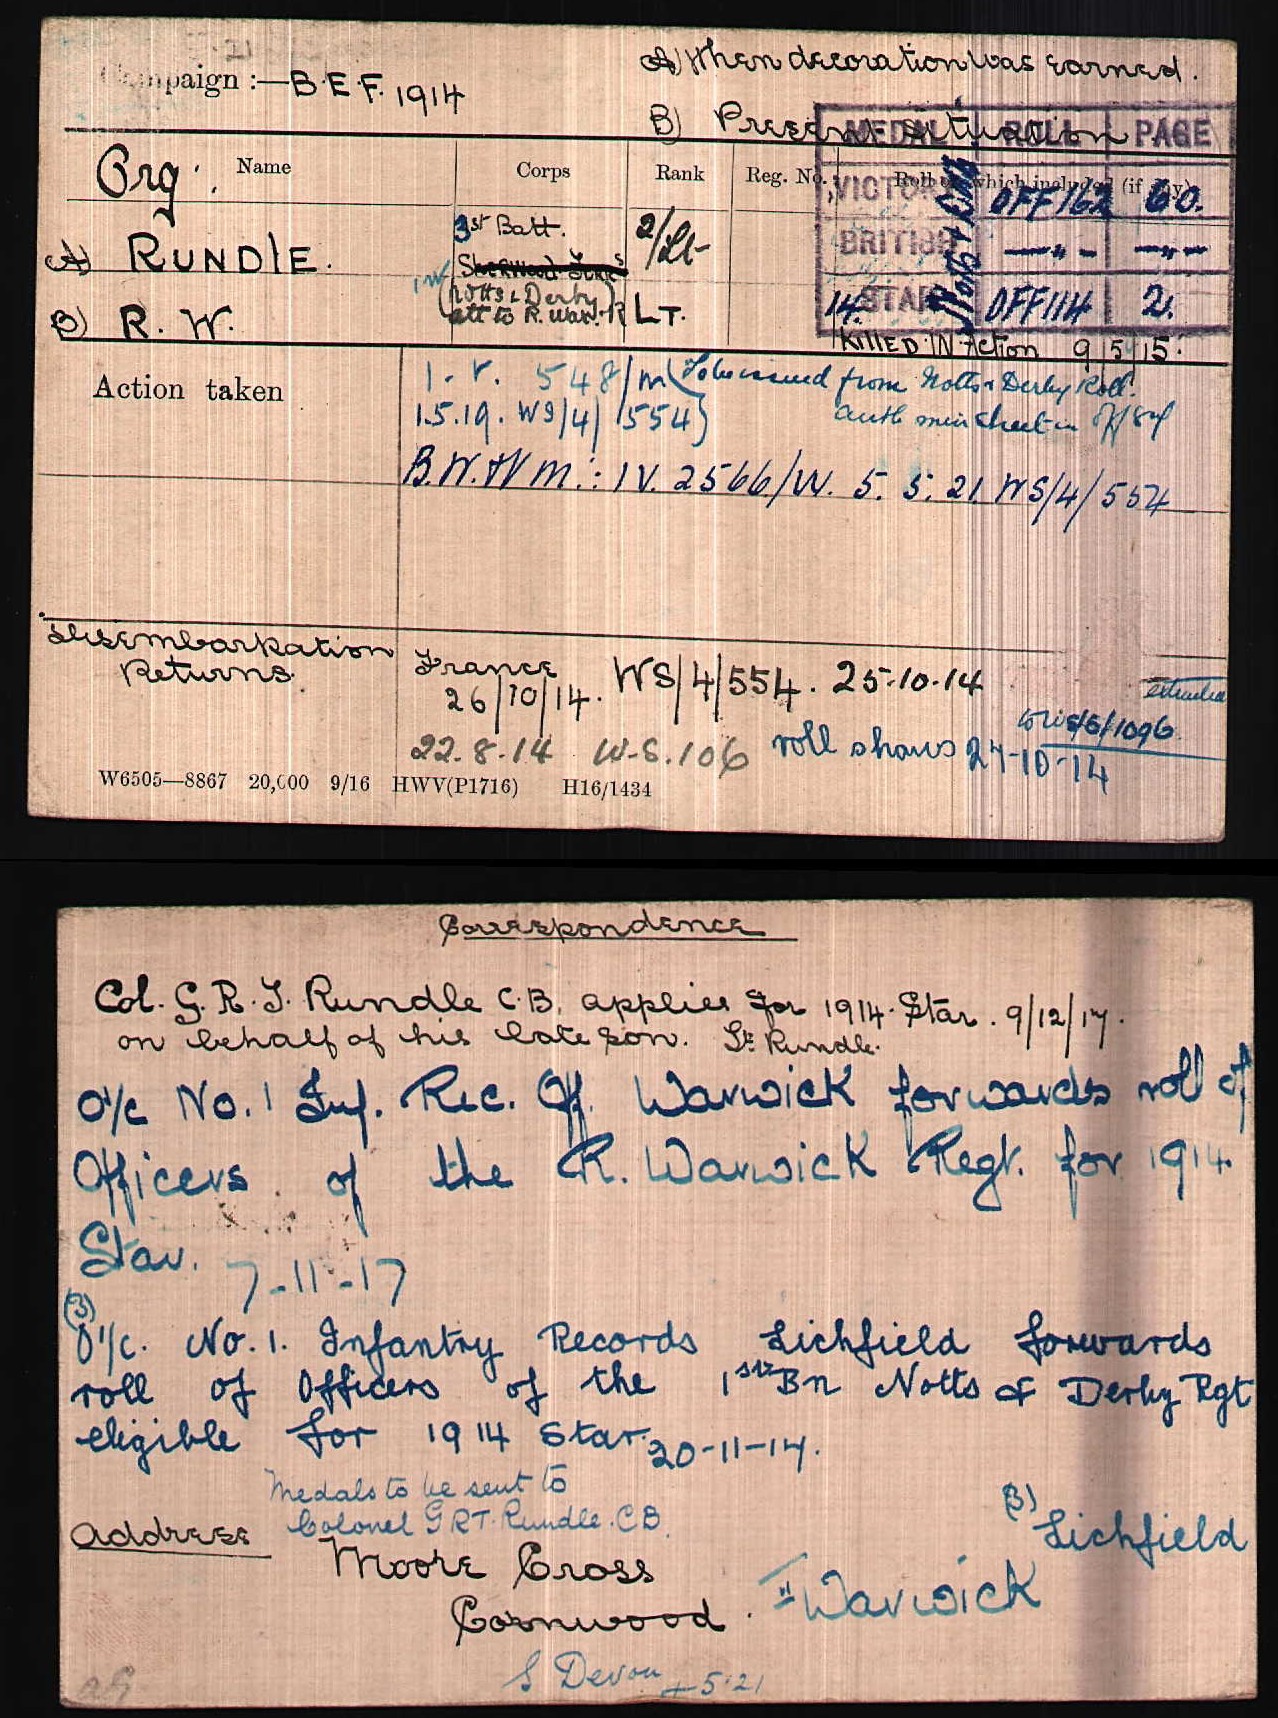 Campaign :—B.E.F. 1914
A) When decoration was earned.
B) Present Situation
MEDAL ROLL PAGE
VICTORY OFF 162 60.
BRITISH —„- —„-
14. STAR OFF 114 2.
Notts & Derby
Org:. Name Corps Rank Reg. No. Roll on which included (if any)
A) RUNDLE. 3st Batt. 2/Lt
Sherwood Fors
B) R. W. (Notts & Derby) LT.
att to R. War. R
Killed in Action 9/5/15.
Action taken
I.V. 548/M (To be issued from Notts & Derby Roll.
1.5.19. WS/4/554) auth min sheet in
B.W. & V M.: IV. 2566/W. 5. 5. 21 WS/4/554
Disembarkation Returns.
France WS/4/554. 25-10-14
26/10/14.
22.8.14 W.S.106 roll shows 27-10-14
W6505—8867 20,000 9/16 HWV(P1716) H16/1434
Correspondence
Col. G. R. T. Rundle C.B. applies for 1914. Star. 9/12/17.
on behalf of his late son. Lt Rundle.
O/c No. 1 Inf. Rec. Off. Warwick forwards roll of
Officers of the R. Warwick Regt. for 1914
Star. 7-11-17
(3)
O/c. No. 1. Infantry Records Lichfield forwards
roll of Officers of the 1st Bn Notts & Derby Rgt
eligible for 1914 Star. 20-11-17.
Medals to be sent to
Colonel GRT. Rundle. CB.
(3) Lichfield
Address Moore Cross
Cornwood. Warwick
S Devon 5.21